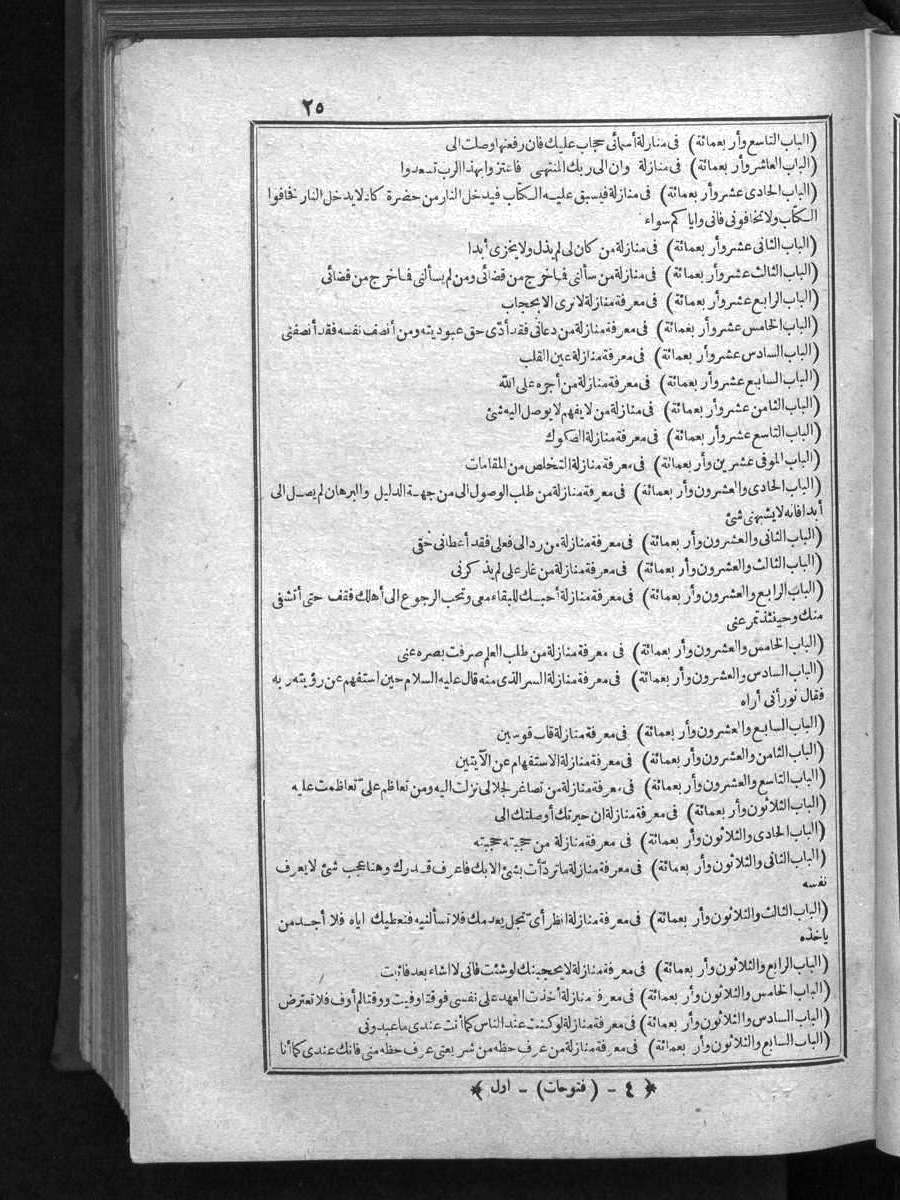 ٢٥
(الباب التاسع وأربعمائة) فى منازلة أسمائى حجاب عليك فان رفعتها وصلت الى
(الباب العاشر وأربعمائة) فى منازلة وان الى ربك المنتهى فاعتزوا بهذا الرب تسعدوا
(الباب الحادى عشر وأربعمائة) فى منازلة فيسبق عليه الكتاب فيدخل النار من حضرة كاد لا يدخل النار فخافوا
الكتاب ولا تخافونى فانى واياكم سواء
(الباب الثانى عشر وأربعمائة) فى منازلة من كان لى لم يذل ولا يخزى أبدا
(الباب الثالث عشر وأربعمائة) فى منازلة من سألنى فما خرج من قضائى ومن لم يسألنى فما خرج من قضائى
(الباب الرابع عشر وأربعمائة) فى معرفة منازلة لا ترى الا بحجاب
(الباب الخامس عشر وأربعمائة) فى معرفة منازلة من دعانى فقد أدّى حق عبوديته ومن أنصف نفسه فقد أنصفنى
(الباب السادس عشر وأربعمائة) فى معرفة منازلة عين القلب
(الباب السابع عشر وأربعمائة) فى معرفة منازلة من أجره على الله
(الباب الثامن عشر وأربعمائة) فى منازلة من لا يفهم لا يوصل اليه شئ
(الباب التاسع عشر وأربعمائة) فى معرفة منازلة الصكوك
(الباب الموفى عشرين وأربعمائة) فى معرفة منازلة التخلص من المقامات
(الباب الحادى والعشرون وأربعمائة) فى معرفة منازلة من طلب الوصول الى من جهة الدليل والبرهان لم يصل الى
أبدا فانه لا يشبهنى شئ
(الباب الثانى والعشرون وأربعمائة) فى معرفة منازلة من رد الى فعلى فقد أعطانى حقى
(الباب الثالث والعشرون وأربعمائة) فى معرفة منازلة من غار على لم يذكرنى
(الباب الرابع والعشرون وأربعمائة) فى معرفة منازلة أحبك للبقاء معى وتحب الرجوع الى أهلك فقف حتى أتشفى
منك وحينئذ تمر عنى
(الباب الخامس والعشرون وأربعمائة) فى معرفة منازلة من طلب العلم صرفت بصره عنى
(الباب السادس والعشرون وأربعمائة) فى معرفة منازلة السر الذى منه قال عليه السلام حين استفهم عن رؤيته ربه
فقال نورانى أراه
(الباب السابع والعشرون وأربعمائة) فى معرفة منازلة قاب قوسين
(الباب الثامن والعشرون وأربعمائة) فى معرفة منازلة الاستفهام عن الآيتين
(الباب التاسع والعشرون وأربعمائة) فى معرفة منازلة من تصاغر لجلالى نزلت اليه ومن تعاظم علىّ تعاظمت عليه
(الباب الثلاثون وأربعمائة) فى معرفة منازلة ان حيرتك أوصلتك الى
(الباب الحادى والثلاثون وأربعمائة) فى معرفة منازلة من حجبته حجبته
(الباب الثانى والثلاثون وأربعمائة) فى معرفة منازلة ما ترددت بشئ الا بك فاعرف قدرك وهنا عجب شئ لا يعرف
نفسه
(الباب الثالث والثلاثون وأربعمائة) فى معرفة منازلة انظر أىّ تجل يعدمك فلا تسألنيه فنعطيك اياه فلا أجد من
ياخذه
(الباب الرابع والثلاثون وأربعمائة) فى معرفة منازلة لا يحجبنك لو شئت فانى لا اشاء بعد فاثبت
(الباب الخامس والثلاثون وأربعمائة) فى معرفة منازلة أخذت العهد على نفسى فوقتا وفيت ووقتا لم أوف فلا تعترض
(الباب السادس والثلاثون وأربعمائة) فى معرفة منازلة لو كنت عند الناس كما أنت عندى ما عبدونى
(الباب السابع والثلاثون وأربعمائة) فى معرفة منازلة من عرف حظه من شريعتى عرف حظه منى فانك عندى كما أنا
﴿ ٤ - (فتوحات) - اول ﴾